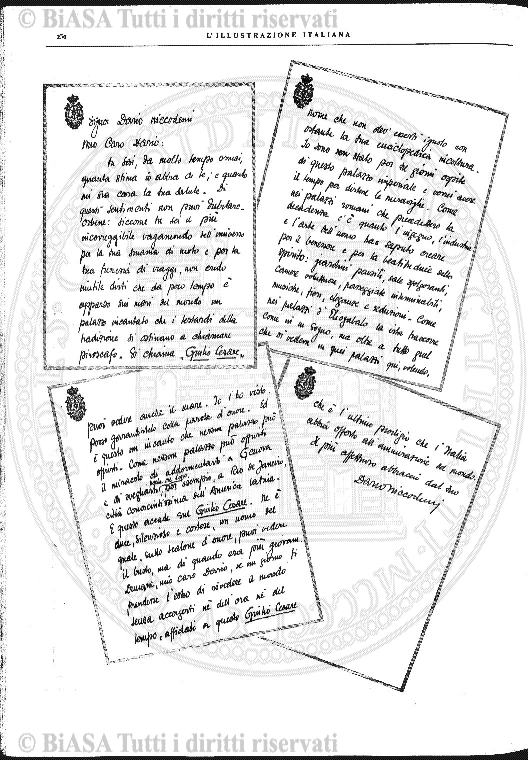 © BiASA Tutti i diritti riservati
L'ILLUSTRAZIONE ITALIANA
Signor Dario Niccodemi
Mio Caro Dario:
tu sai, da molto tempo ormai,
quanta stima io abbia di te, e quanto
mi sia cara la tua salute. Di
questi sentimenti non puoi dubitare.
Orbene: siccome tu sei il più
incorreggibile vagamondo nell'universo
per la tua smania di moto e per la
tua furiosa di viaggi, non credo
inutile dirti che da poco tempo è
apparso sui mari del mondo un
palazzo incantato che i testardi della
tradizione si ostinano a chiamare
piroscafo. Si chiama "Giulio Cesare",
nome che non dev'esserti ignoto non
ostante la tua enciclopedica incultura.
Io sono stato per giorni ospite
di questo palazzo imperiale e vorrei avere
il tempo per dirtene le meraviglie. Come
nei palazzi romani che precedettero la
decadenza c'è quanto l'ingegno, l'industria
e l'arte dell'uomo han saputo creare
per il benessere e per la beatitudine dello
spirito: giardini pensili, sale
camere voluttuose, passeggiate interminabili,
musiche, fiori, eleganze e seduzioni. Come
nei palazzi d'Eliogabalo la vita trascorre
come in un sogno, ma oltre a tutto quel
che si vedeva in quei palazzi qui, volendo,
puoi vedere anche il mare. Io l'ho visto.
Posso garantirtelo colla parola d'onore. Ed
è questo un incanto che nessun palazzo può
offrirti. Come nessun palazzo può offrirti
il miracolo di addormentarti a Genova
e di svegliarti, per esempio, a Rio de Janeiro,
città conosciutissima dell'America latina.
E questo accade sul Giulio Cesare. Se è
duce, silenzioso e cortese, un uomo del
quale, sullo scalone d'onore, puoi vedere
il busto, ma di quando era più giovane.
Dunque, mio caro Dario, se un giorno ti
prendesse l'estro di rivedere il mondo
senza accorgerti nè dell'ora nè del
tempo, affidati a questo Giulio Cesare
che è l'ultimo prodigio che l'Italia
abbia offerto all'ammirazione del mondo.
I più affettuosi abbracci dal tuo
Dario Niccodemi
© BiASA Tutti i diritti riservati